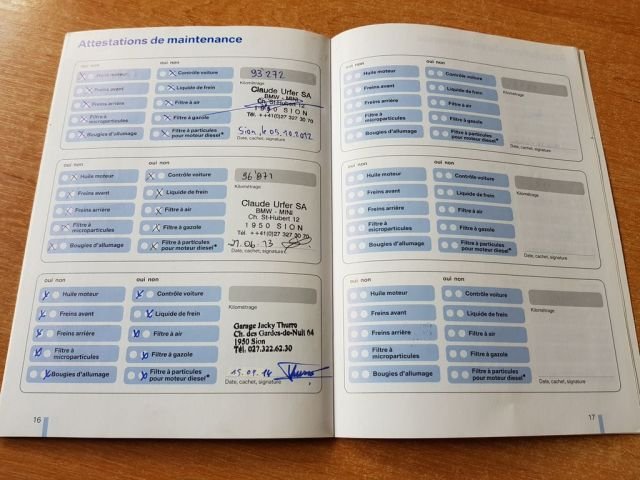 Attestations de maintenance
oui non oui non
Huile moteur Contrôle voiture 93'272
Freins avant Liquide de frein Kilométrage
Freins arrière Filtre à air Claude Urfer SA
Filtre à microparticules Filtre à gazole BMW - MINI
Bougies d'allumage Filtre à particules Ch. St-Hubert 12
pour moteur diesel* 1950 SION
Tél. ++41(0)27 327 30 70
Sion, le 05.10.2012
Date, cachet, signature
oui non oui non
Huile moteur Contrôle voiture 96'871
Freins avant Liquide de frein Kilométrage
Freins arrière Filtre à air Claude Urfer SA
Filtre à microparticules Filtre à gazole BMW - MINI
Bougies d'allumage Filtre à particules Ch. St-Hubert 12
pour moteur diesel* 1950 SION
Tél. ++41(0)27 327 30 70
27.06.13
Date, cachet, signature
oui non oui non
Huile moteur Contrôle voiture
Freins avant Liquide de frein Kilométrage
Freins arrière Filtre à air Garage Jacky Thurro
Filtre à microparticules Filtre à gazole Ch. des Gardes-de-Nuit 64
Bougies d'allumage Filtre à particules 1950 Sion
pour moteur diesel* Tél. 027.322.62.30
15.09.14
Date, cachet, signature
16
oui non oui non
Huile moteur Contrôle voiture
Freins avant Liquide de frein Kilométrage
Freins arrière Filtre à air
Filtre à microparticules Filtre à gazole
Bougies d'allumage Filtre à particules
pour moteur diesel* Date, cachet, signature
oui non oui non
Huile moteur Contrôle voiture
Freins avant Liquide de frein Kilométrage
Freins arrière Filtre à air
Filtre à microparticules Filtre à gazole
Bougies d'allumage Filtre à particules
pour moteur diesel* Date, cachet, signature
oui non oui non
Huile moteur Contrôle voiture
Freins avant Liquide de frein Kilométrage
Freins arrière Filtre à air
Filtre à microparticules Filtre à gazole
Bougies d'allumage Filtre à particules
pour moteur diesel* Date, cachet, signature
17